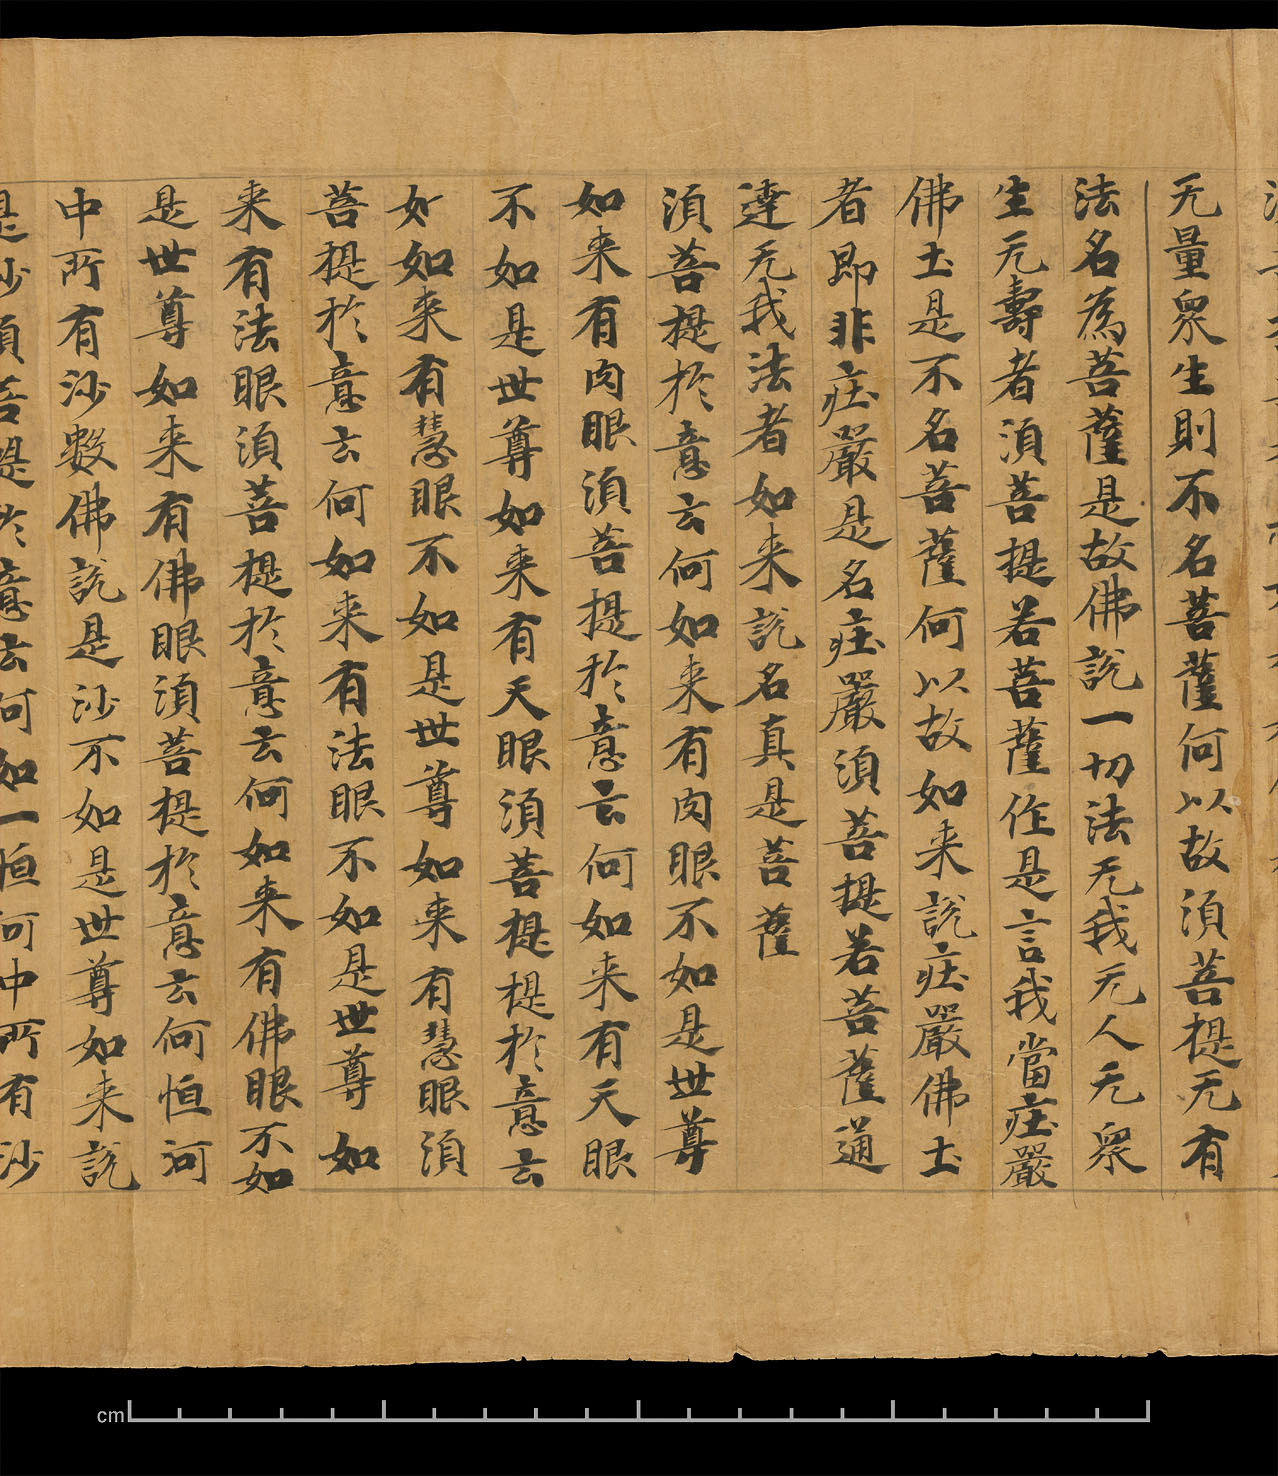 无量眾生則不名菩薩何以故湏菩提无有
法名為菩薩是故佛說一切法无我无人无眾
生无壽者湏菩提若菩薩作是言我當庄嚴
佛土是不名菩薩何以故如来說庄嚴佛土
者即非庄嚴是名庄嚴湏菩提若菩薩通
達无我法者如来說名真是菩薩
湏菩提於意云何如来有肉眼不如是世尊
如来有肉眼湏菩提於意云何如来有天眼
不如是世尊如来有天眼湏菩提提於意云
如如来有慧眼不如是世尊如来有慧眼湏
菩提於意云何如来有法眼不如是世尊如
来有法眼湏菩提於意云何如来有佛眼不如
是世尊如来有佛眼湏菩提於意云何恒河
中所有沙數佛說是沙不如是世尊如来說
是沙湏菩提於意云何如一恒河中所有沙
cm